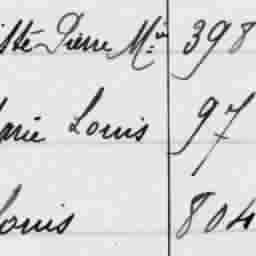 Pierre Mie 398
arie Louis 97
Louis 804